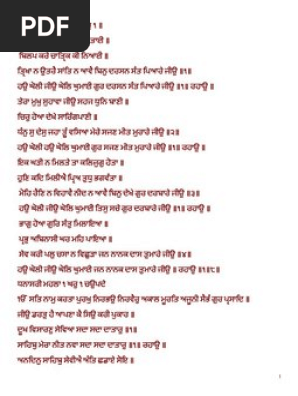 PDF
੧ ॥
ਤਾਈ ॥
ਬਿਲਪ ਕਰੇ ਚਾਤ੍ਰਿਕ ਕੀ ਨਿਆਈ ॥
ਤ੍ਰਿਖਾ ਨ ਉਤਰੈ ਸਾਂਤਿ ਨ ਆਵੈ ਬਿਨੁ ਦਰਸਨ ਸੰਤ ਪਿਆਰੇ ਜੀਉ ॥੧॥
ਹਉ ਘੋਲੀ ਜੀਉ ਘੋਲਿ ਘੁਮਾਈ ਗੁਰ ਦਰਸਨ ਸੰਤ ਪਿਆਰੇ ਜੀਉ ॥੧॥ ਰਹਾਉ ॥
ਤੇਰਾ ਮੁਖੁ ਸੁਹਾਵਾ ਜੀਉ ਸਹਜ ਧੁਨਿ ਬਾਣੀ ॥
ਚਿਰੁ ਹੋਆ ਦੇਖੇ ਸਾਰਿੰਗਪਾਣੀ ॥
ਧੰਨੁ ਸੁ ਦੇਸੁ ਜਹਾ ਤੂੰ ਵਸਿਆ ਮੇਰੇ ਸਜਣ ਮੀਤ ਮੁਰਾਰੇ ਜੀਉ ॥੨॥
ਹਉ ਘੋਲੀ ਹਉ ਘੋਲਿ ਘੁਮਾਈ ਗੁਰ ਸਜਣ ਮੀਤ ਮੁਰਾਰੇ ਜੀਉ ॥੧॥ ਰਹਾਉ ॥
ਇਕ ਘੜੀ ਨ ਮਿਲਤੇ ਤਾ ਕਲਿਜੁਗੁ ਹੋਤਾ ॥
ਹੁਣਿ ਕਦਿ ਮਿਲੀਐ ਪ੍ਰਿਅ ਤੁਧੁ ਭਗਵੰਤਾ ॥
ਮੋਹਿ ਰੈਣਿ ਨ ਵਿਹਾਵੈ ਨੀਦ ਨ ਆਵੈ ਬਿਨੁ ਦੇਖੇ ਗੁਰ ਦਰਬਾਰੇ ਜੀਉ ॥੩॥
ਹਉ ਘੋਲੀ ਜੀਉ ਘੋਲਿ ਘੁਮਾਈ ਤਿਸੁ ਸਚੇ ਗੁਰ ਦਰਬਾਰੇ ਜੀਉ ॥੧॥ ਰਹਾਉ ॥
ਭਾਗੁ ਹੋਆ ਗੁਰਿ ਸੰਤੁ ਮਿਲਾਇਆ ॥
ਪ੍ਰਭੁ ਅਬਿਨਾਸੀ ਘਰ ਮਹਿ ਪਾਇਆ ॥
ਸੇਵ ਕਰੀ ਪਲੁ ਚਸਾ ਨ ਵਿਛੁੜਾ ਜਨ ਨਾਨਕ ਦਾਸ ਤੁਮਾਰੇ ਜੀਉ ॥੪॥
ਹਉ ਘੋਲੀ ਜੀਉ ਘੋਲਿ ਘੁਮਾਈ ਜਨ ਨਾਨਕ ਦਾਸ ਤੁਮਾਰੇ ਜੀਉ ॥ ਰਹਾਉ ॥੧॥੮॥
ਧਨਾਸਰੀ ਮਹਲਾ ੧ ਘਰੁ ੧ ਚਉਪਦੇ
ੴ ਸਤਿ ਨਾਮੁ ਕਰਤਾ ਪੁਰਖੁ ਨਿਰਭਉ ਨਿਰਵੈਰੁ ਅਕਾਲ ਮੂਰਤਿ ਅਜੂਨੀ ਸੈਭੰ ਗੁਰ ਪ੍ਰਸਾਦਿ ॥
ਜੀਉ ਡਰਤੁ ਹੈ ਆਪਣਾ ਕੈ ਸਿਉ ਕਰੀ ਪੁਕਾਰ ॥
ਦੂਖ ਵਿਸਾਰਣੁ ਸੇਵਿਆ ਸਦਾ ਸਦਾ ਦਾਤਾਰੁ ॥੧॥
ਸਾਹਿਬੁ ਮੇਰਾ ਨੀਤ ਨਵਾ ਸਦਾ ਸਦਾ ਦਾਤਾਰੁ ॥੧॥ ਰਹਾਉ ॥
ਅਨਦਿਨੁ ਸਾਹਿਬੁ ਸੇਵੀਐ ਅੰਤਿ ਛਡਾਏ ਸੋਇ ॥